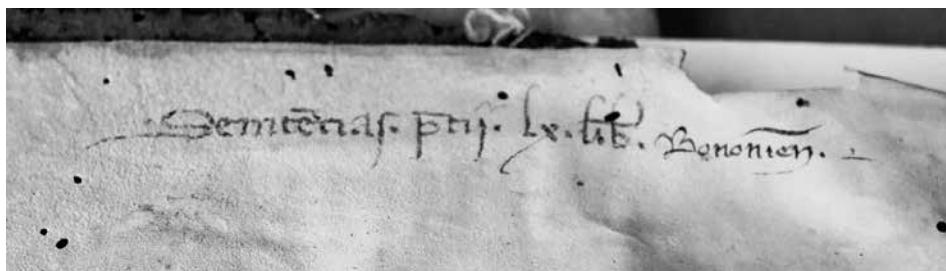 Sentēcias. p̄cij. lx. lib̄. Bononien̄.